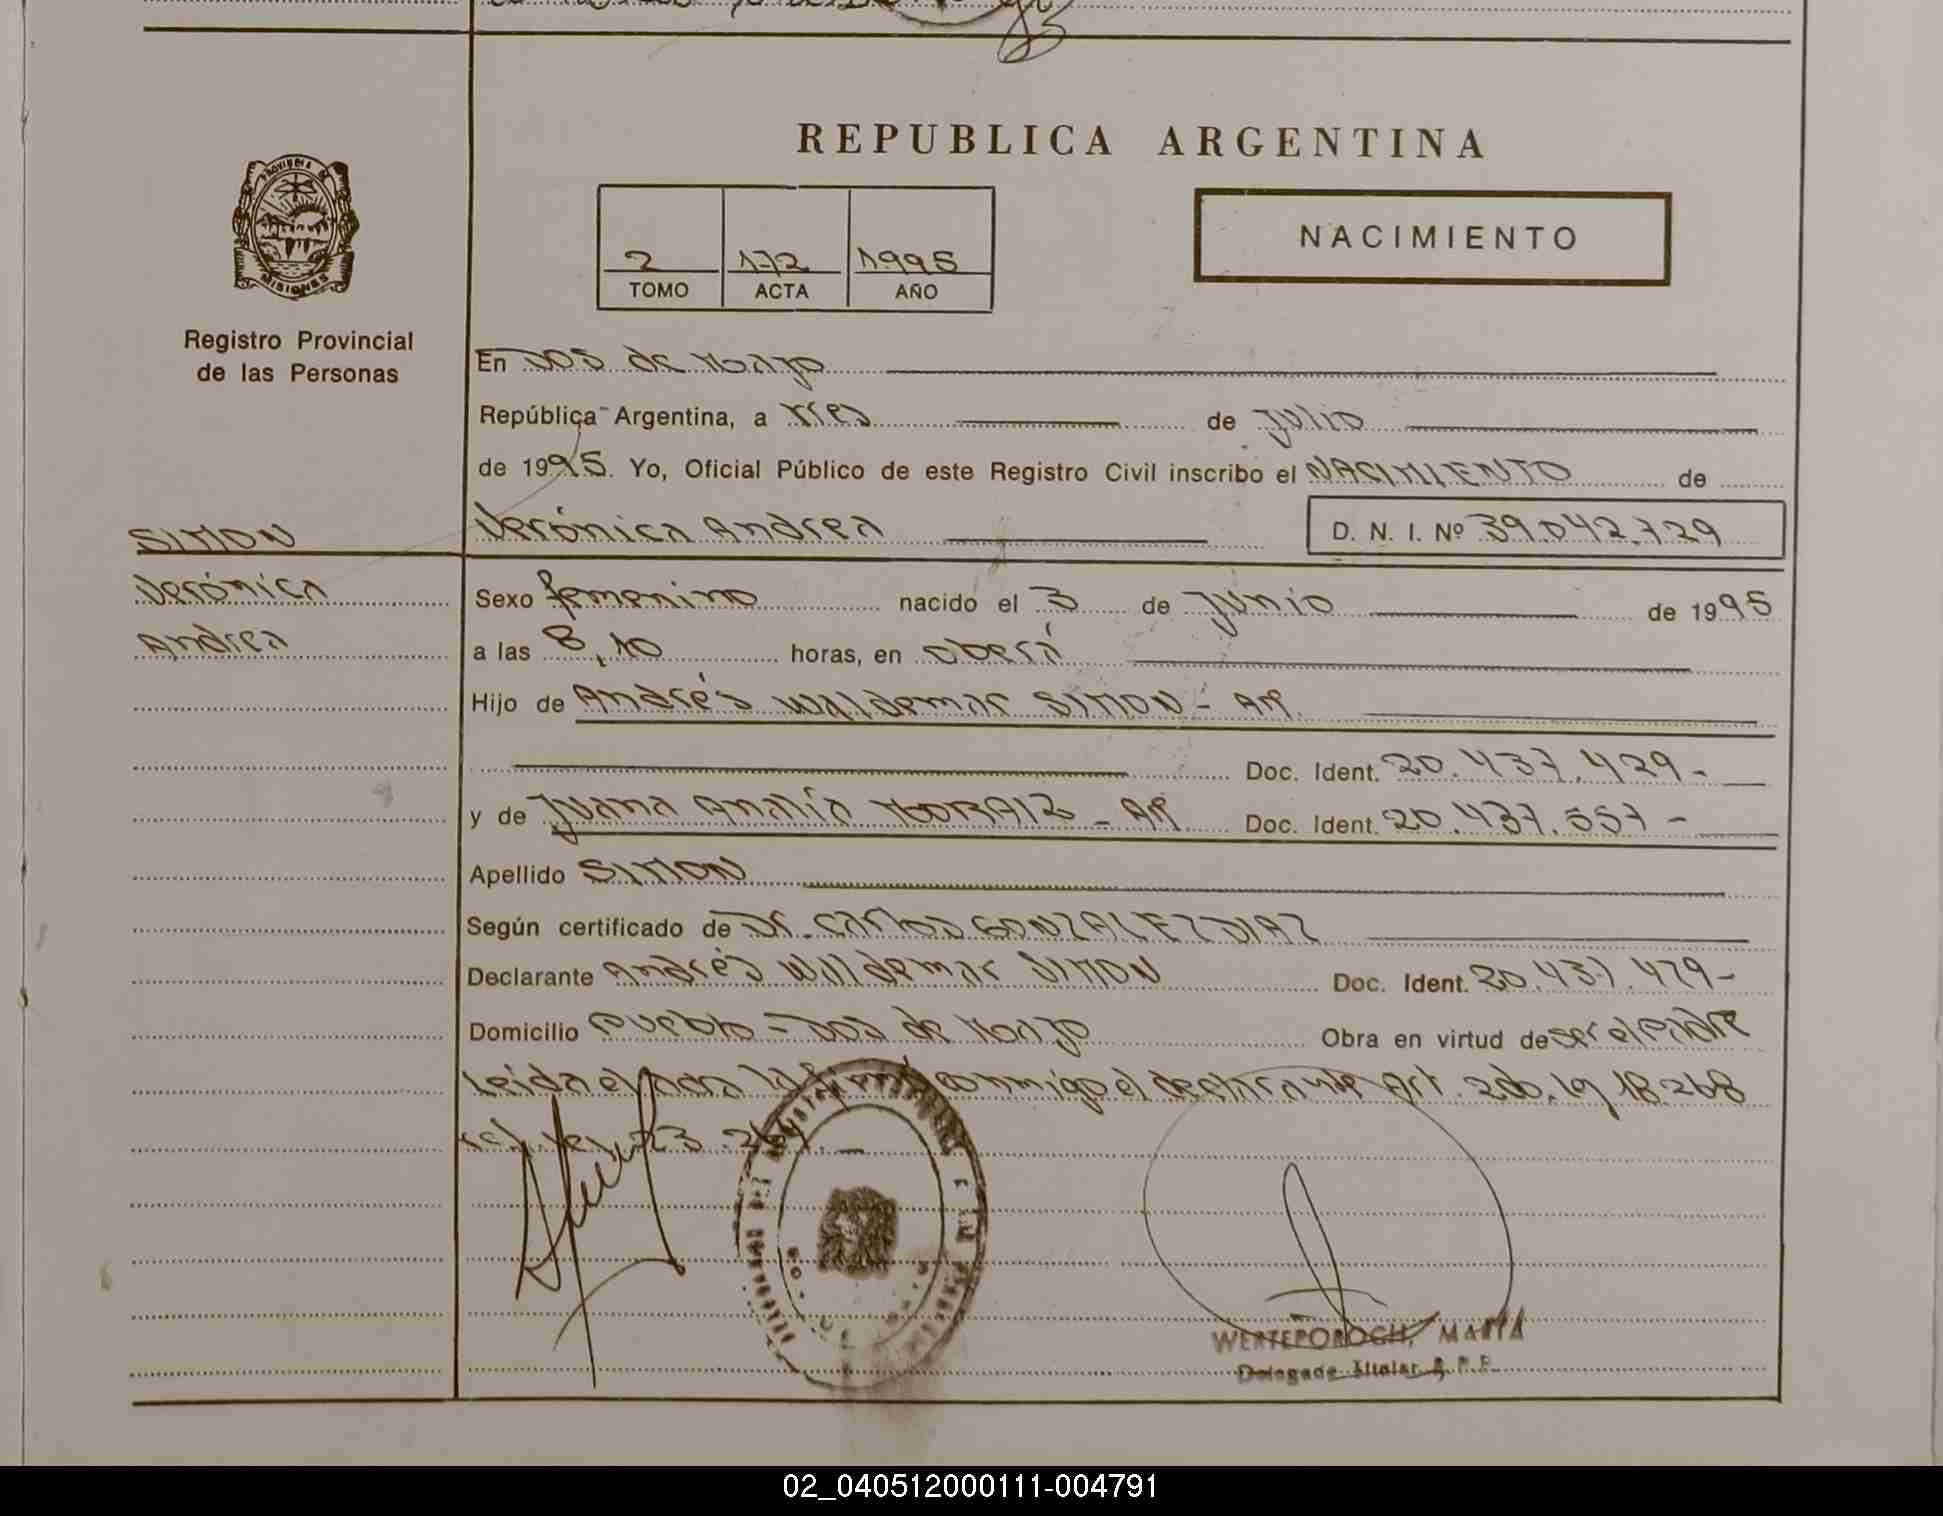 REPUBLICA ARGENTINA
PROVINCIA DE
MISIONES
Registro Provincial
de las Personas
2 172 1995
TOMO ACTA AÑO
NACIMIENTO
En Dos de Mayo
República Argentina, a tres de Julio
de 1995. Yo, Oficial Público de este Registro Civil inscribo el NACIMIENTO de
SIMON
Verónica Andrea D. N. I. Nº 39.042.729
Verónica
Andrea
Sexo femenino nacido el 3 de Junio de 1995
a las 8,10 horas, en Oberá
Hijo de Andrés Waldemar SIMON - AR.
Doc. Ident. 20.437.429-
y de Juana Analía MORAIZ - AR Doc. Ident. 20.437.557-
Apellido SIMON
Según certificado de Dr. Carlos GONZALEZ DIAZ
Declarante Andrés Waldemar SIMON Doc. Ident. 20.437.479-
Domicilio Pueblo - Dos de Mayo Obra en virtud de ser el Padre
Leída el acta la conmigo el declarante Art. 2do. ley 18.268
ley 23.264.
WERTEPOROCH, MARIA
Delegado Titular R.P.P.
02_040512000111-004791